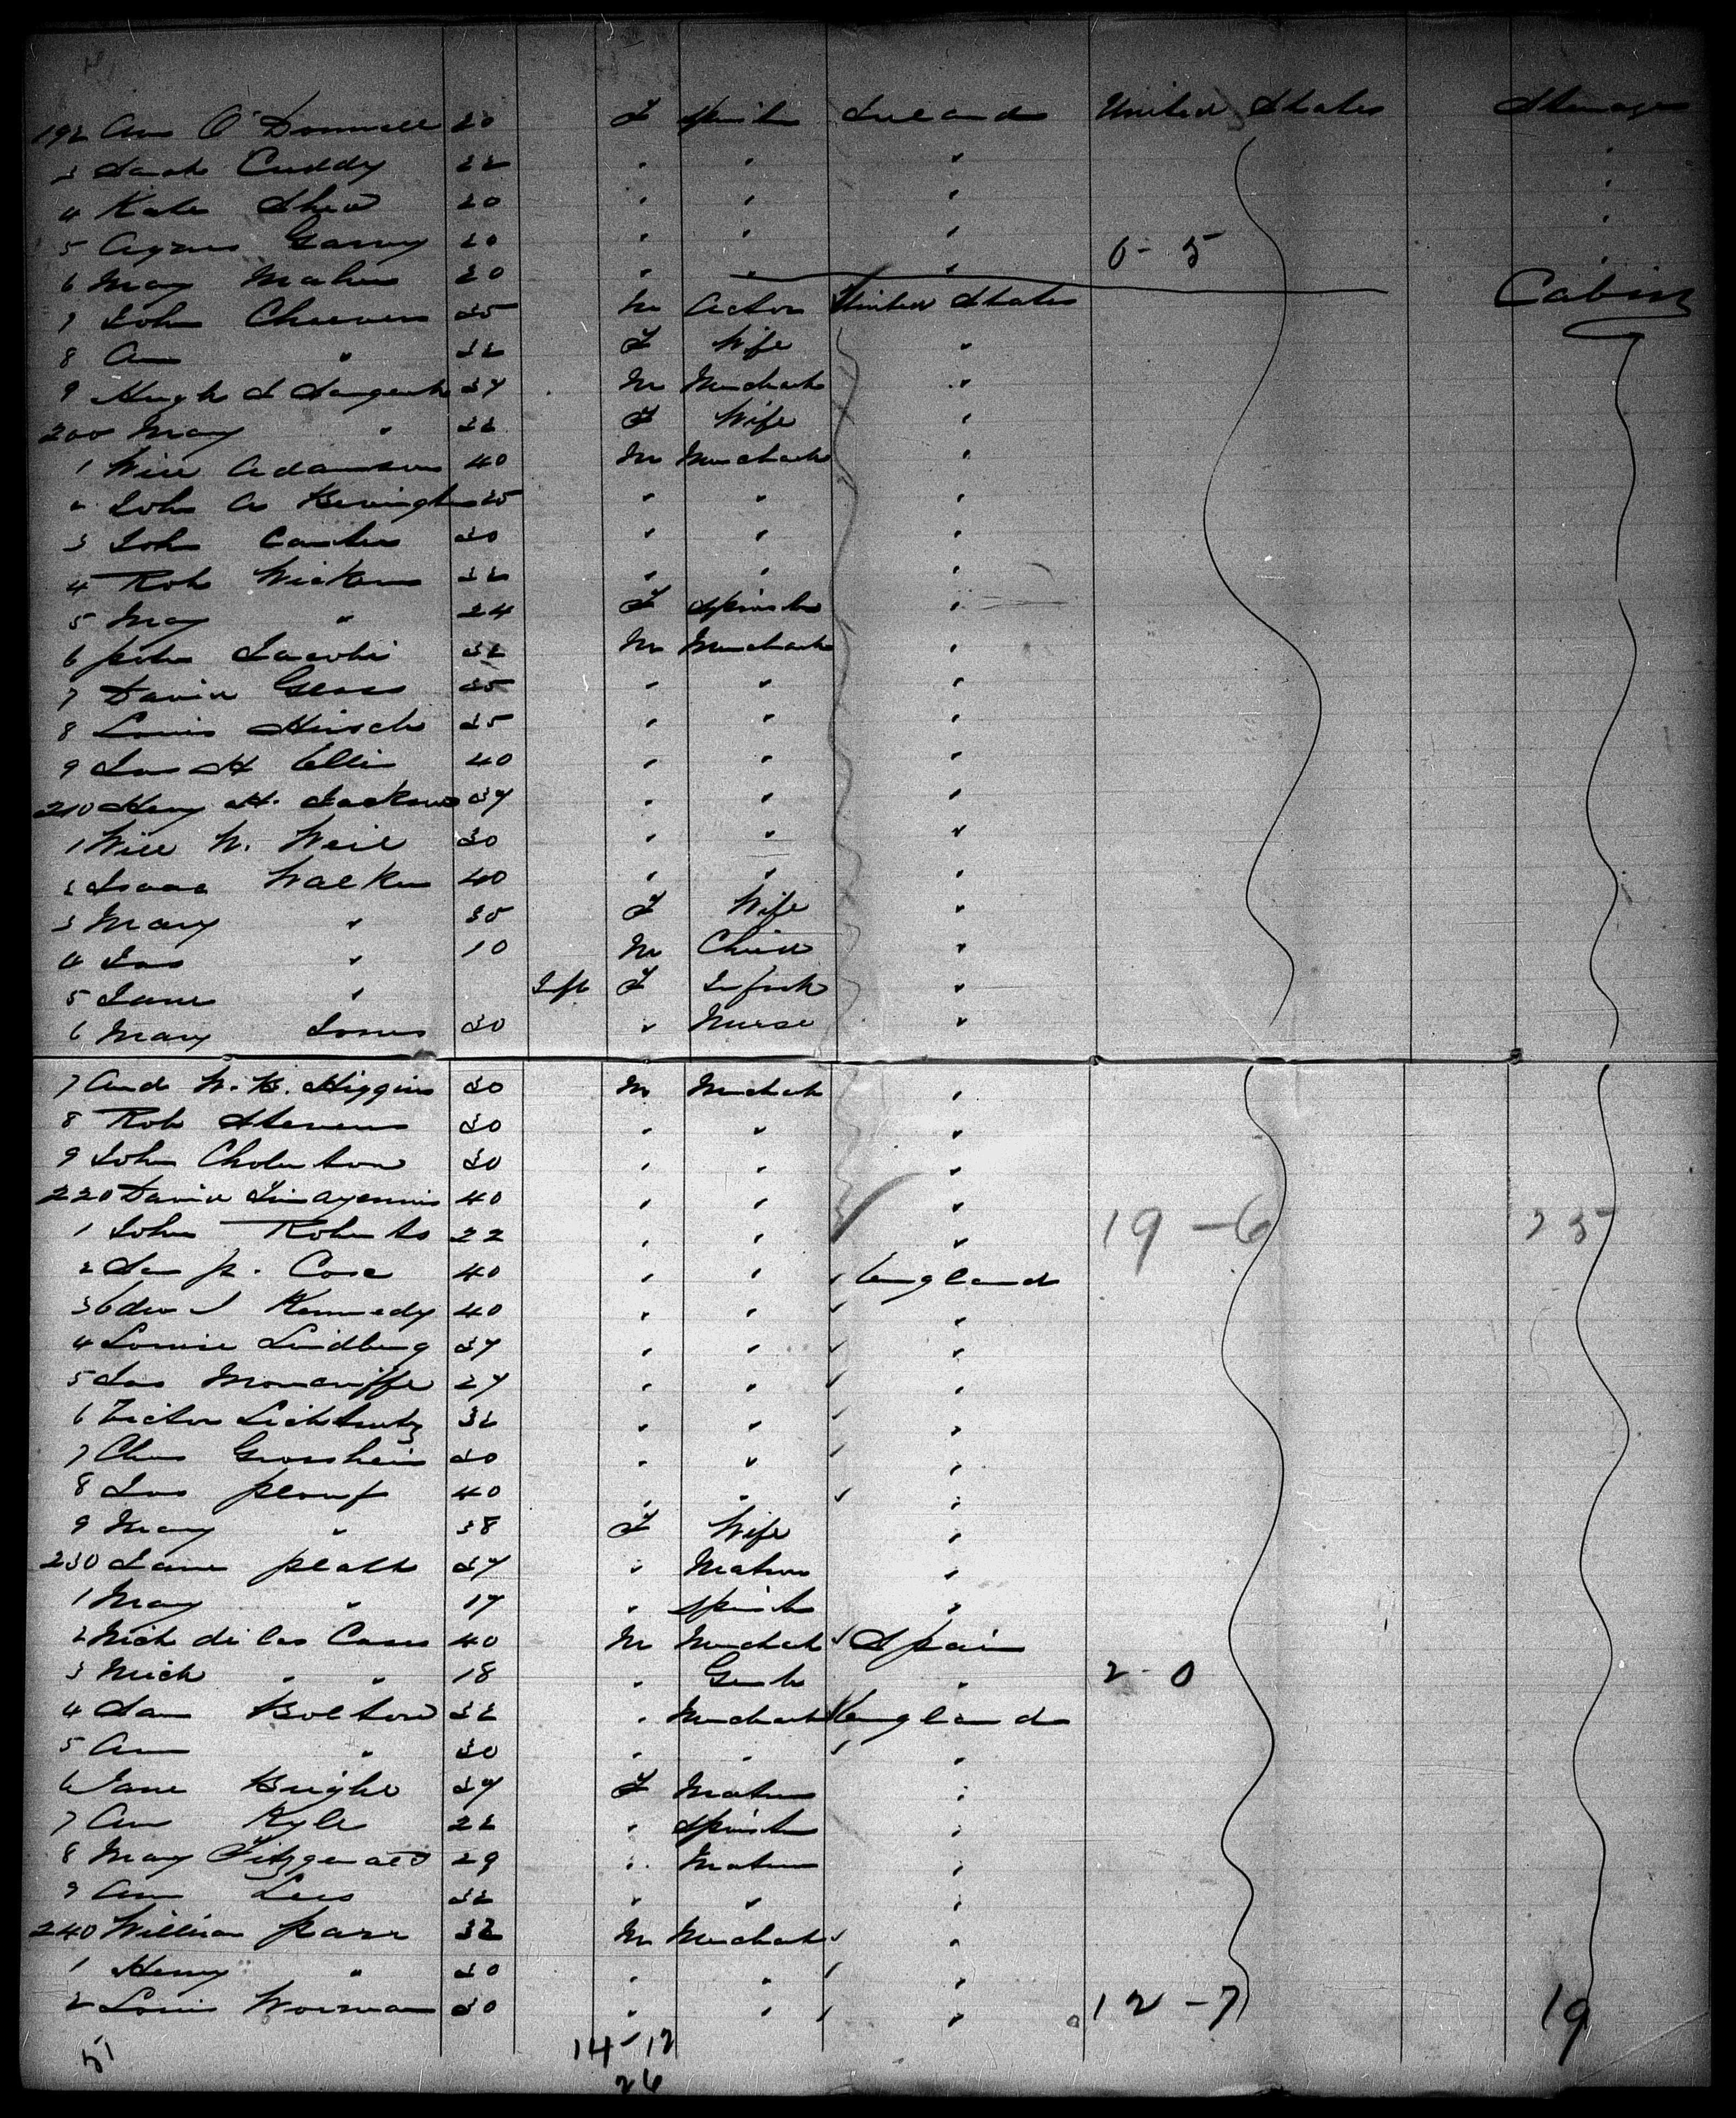 192 Ann O'Donnell 20 F Spinster Ireland United States Steerage
3 Sarah Cuddy 22 " " " "
4 Kate Shea 20 " " " "
5 Agnes Garvey 20 " " " "
6 Mary Maher 20 " " " 0-5
7 John Cheevers 35 M Actor United States Cabin
8 Ann " 32 F Wife "
9 Hugh S Sargent 37 M Merchant "
200 Mary " 32 F Wife "
1 Will Adamson 40 M Merchant "
2 John A 35 " " "
3 John 30 " " "
4 Rob 32 " " "
5 Mary " 24 F Spinster "
6 Peter Jacobi 32 M Merchant "
7 David 35 " " "
8 Louis Hirsch 35 " " "
9 Jas H Ellis 40 " " "
210 Henry H. Jackson 37 " " "
1 Will W. Weil 30 " " "
2 Isaac Walker 40 " " "
3 Mary " 30 F Wife "
4 Jas " 10 M Child "
5 Jane " Inft F Infant "
6 Mary Jones 30 " Nurse "
7 And W. B. Higgins 30 M Merchat "
8 Rob Stevens 30 " " "
9 John Cholerton 30 " " "
220 David 40 " " "
1 John Roberts 22 " " " 19-6 25
2 Sam P. Case 40 " " England
3 Edw J Kennedy 40 " " "
4 Lindberg 37 " " "
5 Jas Moncriffe 27 " " "
6 Victor 32 " " "
7 Chas 30 " " "
8 Jas 40 " " "
9 Mary " 38 F Wife "
230 Jane Platt 37 " Matron "
1 Mary " 17 " Spinster "
2 Nich de las Casas 40 M Merchat Spain
3 Mich " " 18 " Gent " 2-0
4 Sam Bolton 32 " Merchant England
5 Ann " 30 " " "
6 Jane Bright 37 F Matron "
7 Ann Kyle 22 " Spinster "
8 Mary Fitzgerald 29 " Matron "
9 Ann Lees 32 " " "
240 William Parr 32 M Merchat "
1 Henry " 30 " " "
2 Louis Worman 30 " " " 12-7 19
51 14-12
26